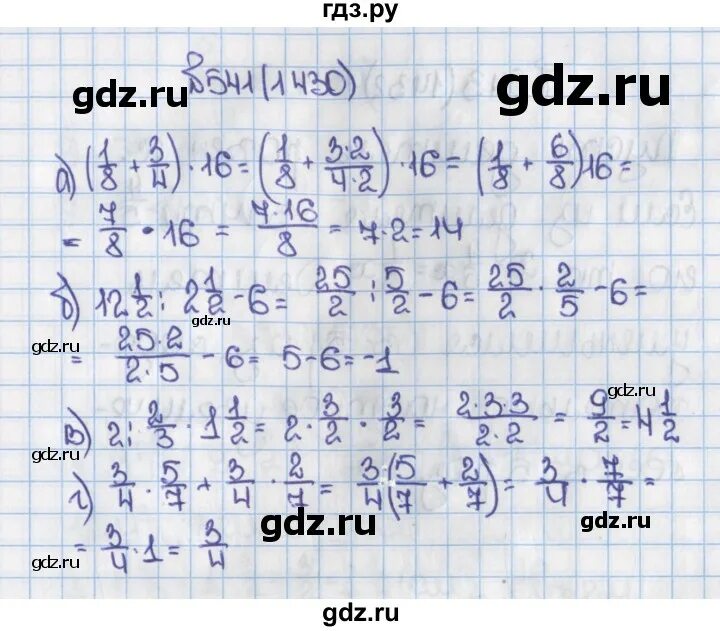 гдз.ру
gdz.ru gdz.ru
№541(1430)
а) (1/8 + 3/4) · 16 = (1/8 + 3·2/4·2) · 16 = (1/8 + 6/8)16 =
gdz.ru
= 7/8 · 16 = 7·16/8 = 7·2 = 14
б) 12 1/2 : 2 1/2 - 6 = 25/2 : 5/2 - 6 = 25/2 · 2/5 - 6 =
gdz.ru
gdz.ru
= 25·2/2·5 - 6 = 5-6 = -1
gdz.ru
в) 2 : 2/3 · 1 1/2 = 2 · 3/2 · 3/2 = 2·3·3/2·2 = 9/2 = 4 1/2
gdz.ru
г) 3/4 · 5/7 + 3/4 · 2/7 = 3/4(5/7 + 2/7) = 3/4 · 7/7 =
gdz.ru gdz.ru
= 3/4 · 1 = 3/4
gdz.ru
gdz.ru